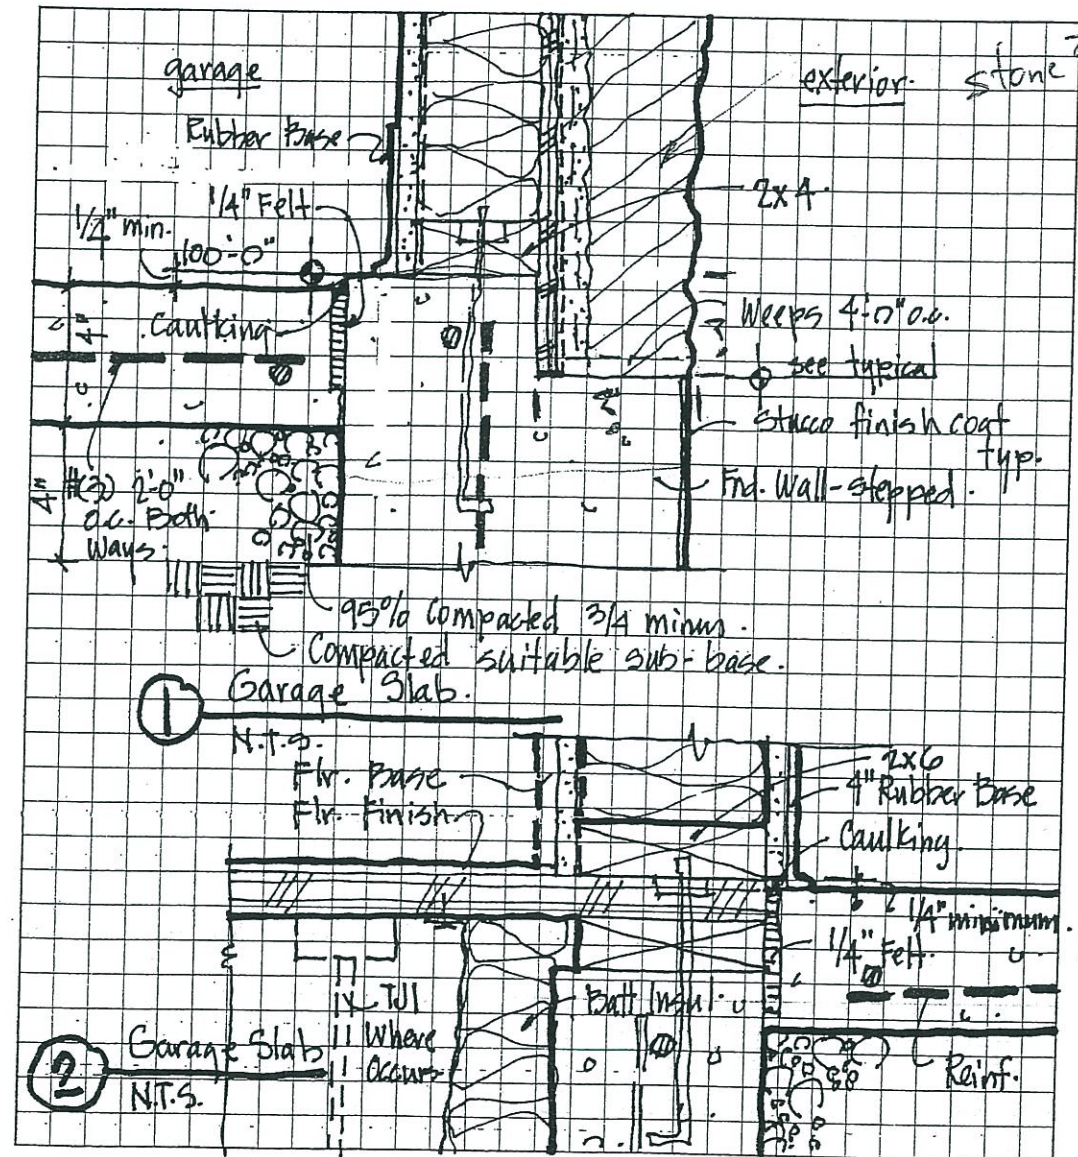 garage
exterior.
stone
Rubber Base
1/4" Felt
2x4.
1/2" min.
100'-0"
Caulking
4"
Weeps 4'-0" o.c.
see typical
Stucco finish coat
typ.
Fnd. Wall-stepped.
4"
#(3) 2'-0"
o.c. Both
Ways.
95% Compacted 3/4 minus.
Compacted suitable sub-base.
1
Garage Slab.
N.T.S.
Flr. Base
Flr. Finish
2x6
4" Rubber Base
Caulking.
1/4" minimum.
1/4" Felt.
Batt Insul.
TJI
Where
Occurs
Reinf.
2
Garage Slab
N.T.S.